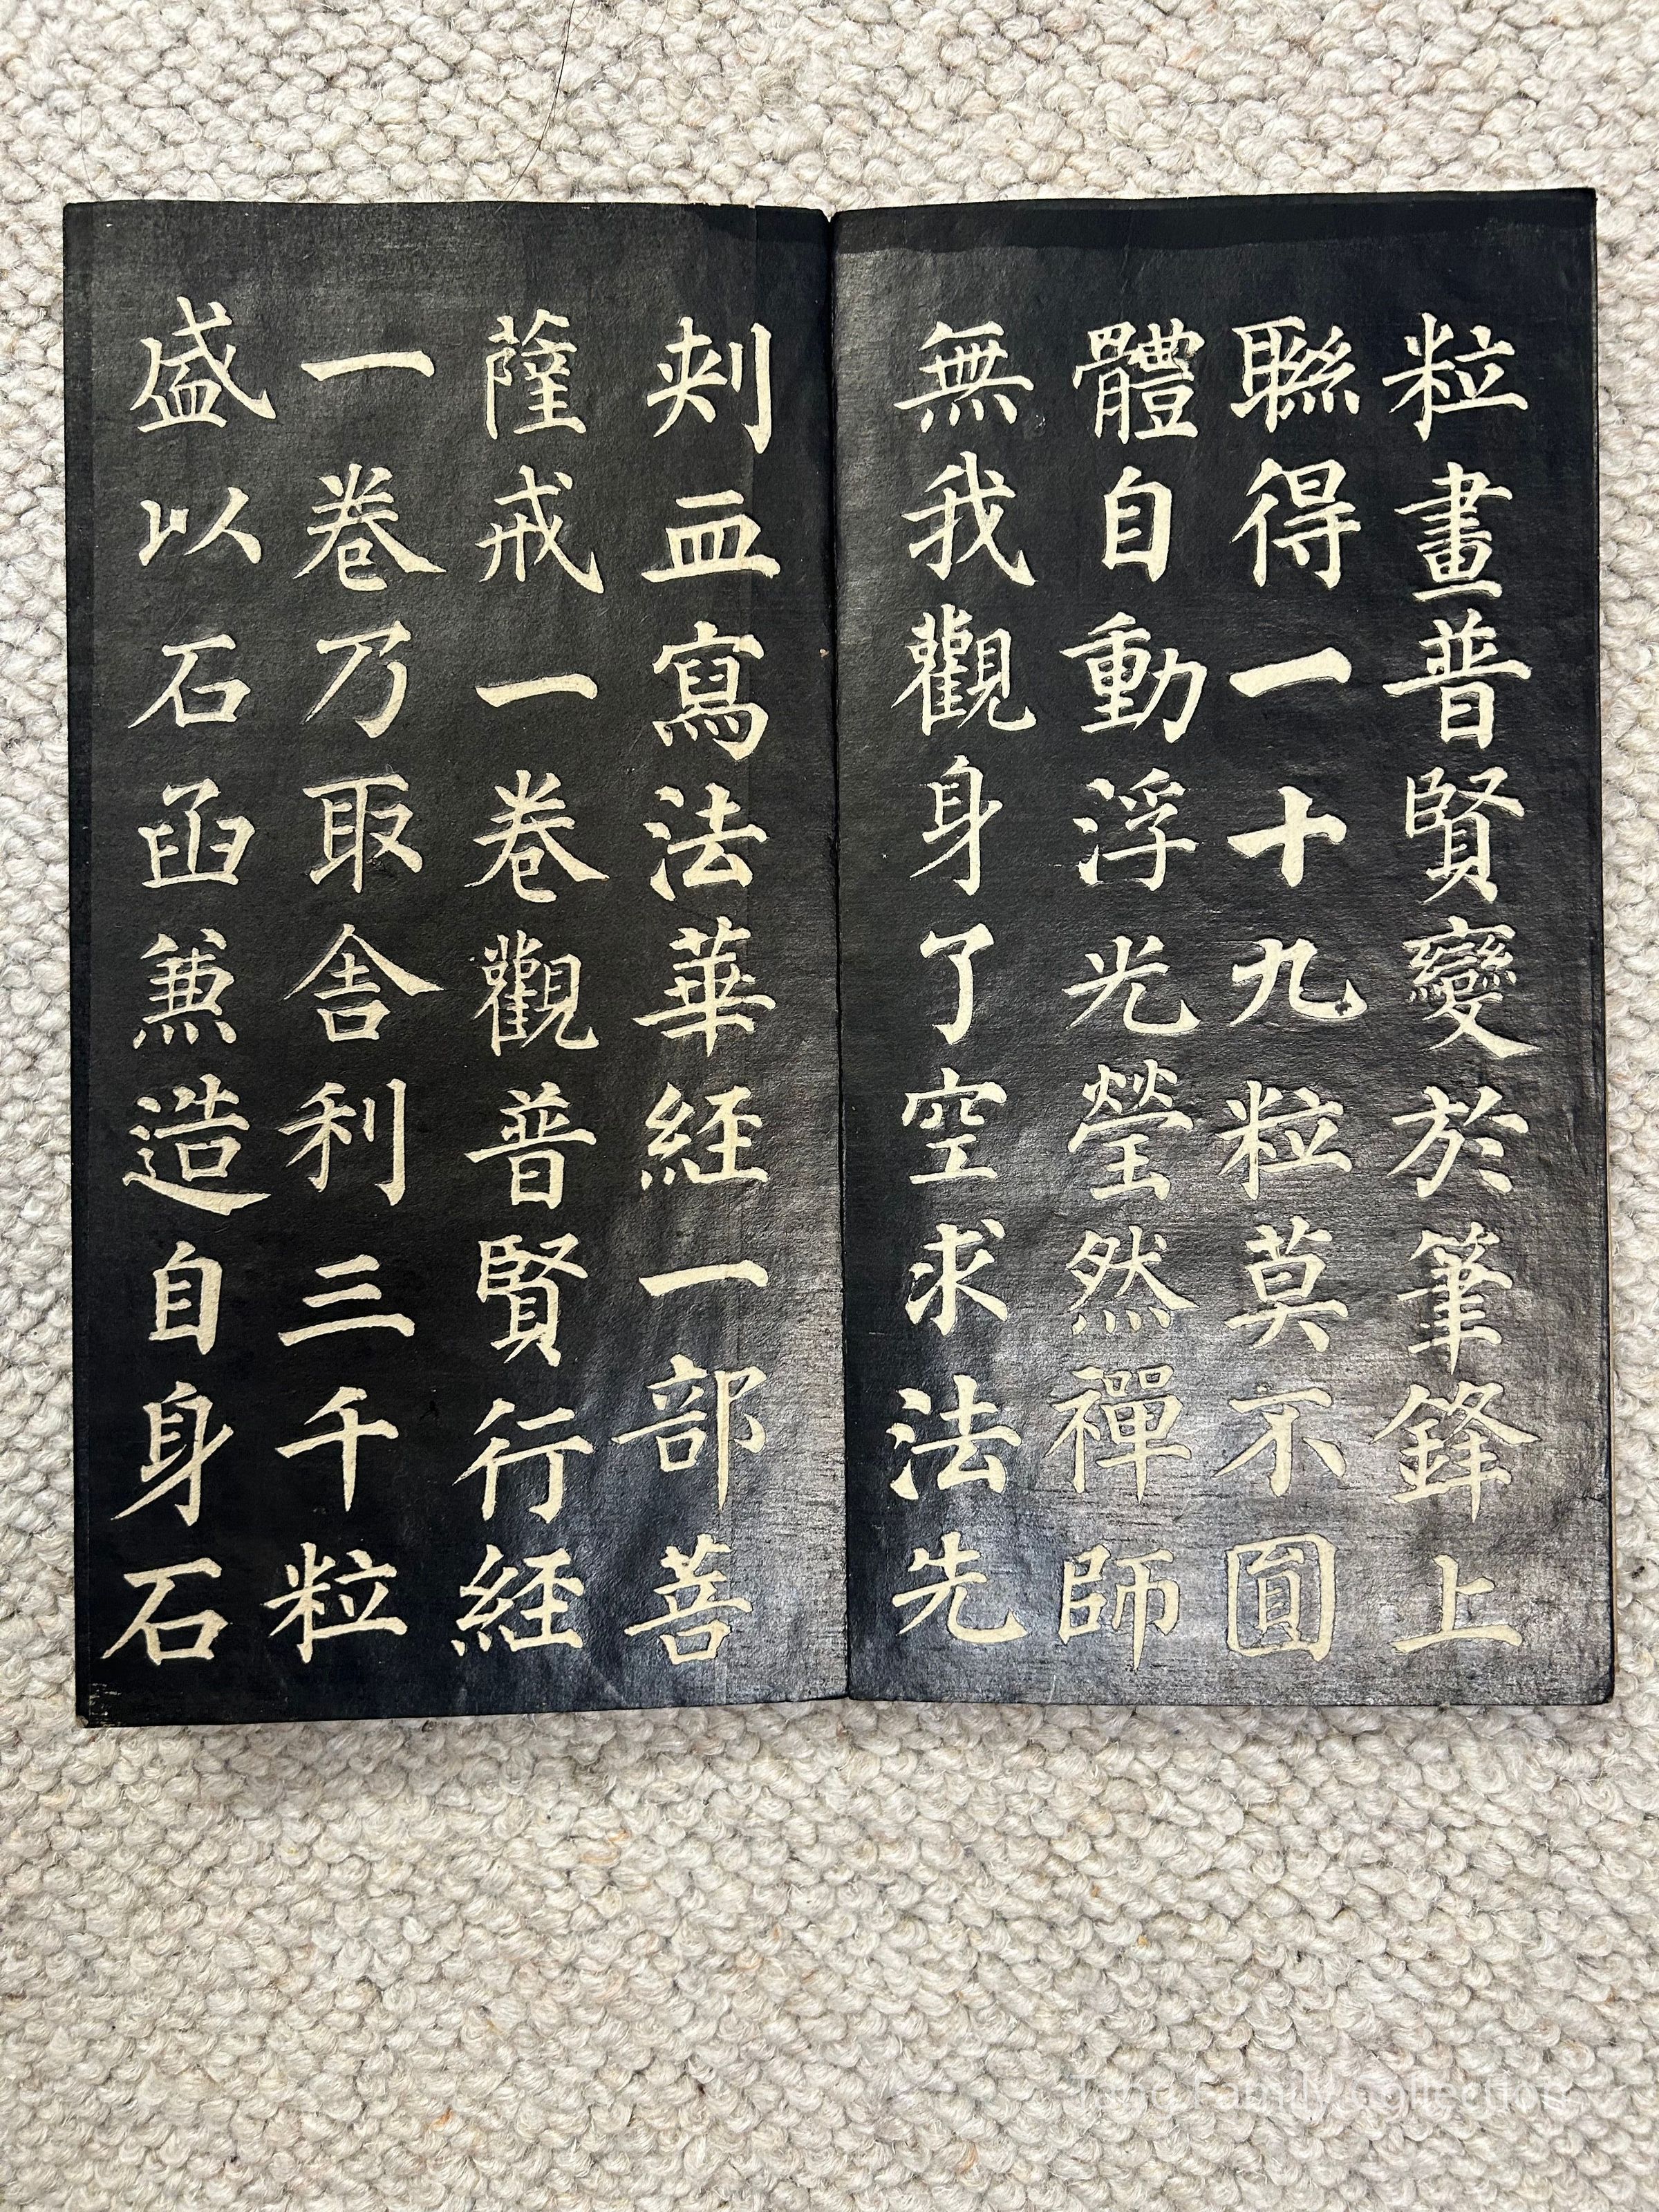 粒畫普賢變於筆鋒上
聮得一十九粒莫不圎
體自動浮光瑩然禪師
無我觀身了空求法先
刾血寫法華經一部菩
薩戒一卷觀普賢行經
一卷乃取舍利三千粒
盛以石函兼造自身石
Tang Family Collection